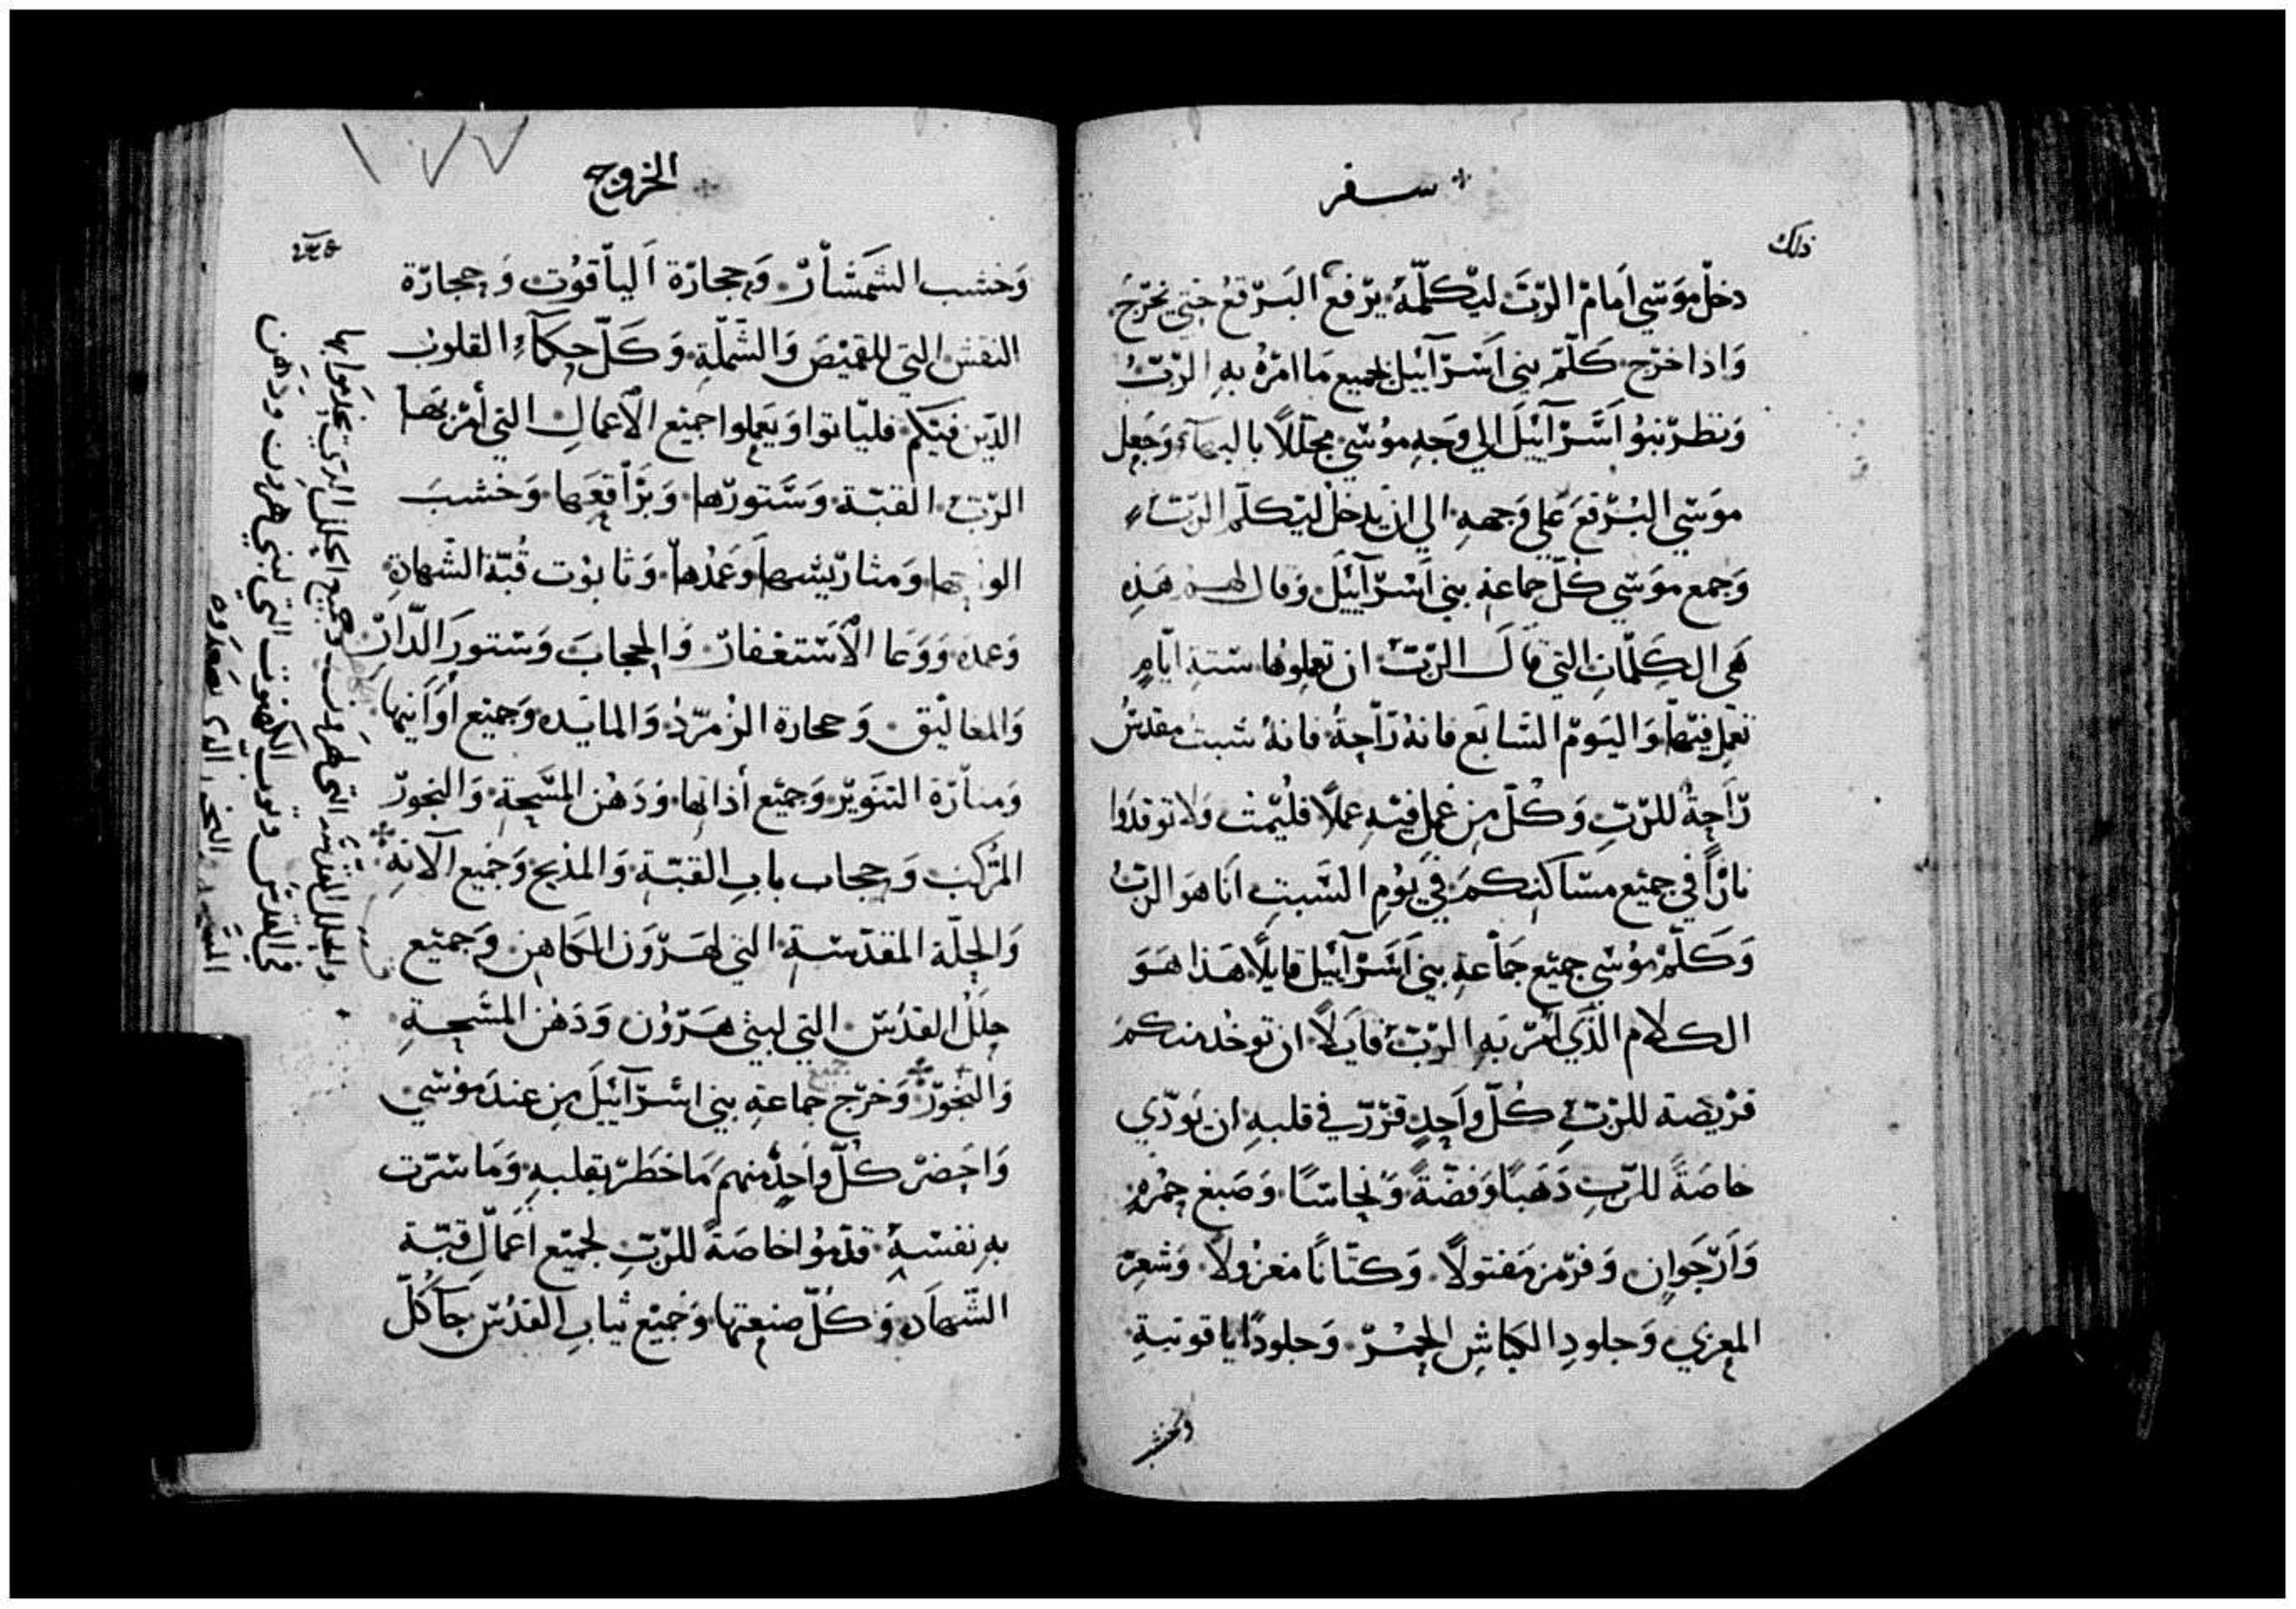 سفر
ذلك
دخل موسي امام الرب ليكلمه يرفع البرقع حتي يخرج
واذا خرج كلم بني اسرآئيل بجميع ما امره به الرب
ونظر بنوا اسرآئيل الي وجه موسي مجللاً بالبهآء وجعل
موسي البرقع علي وجهه الي ان يدخل ليكلم الرب
وجمع موسي كل جماعة بني اسرآئيل وقال لهم هذه
هي الكلمات التي قال الرب ان تعملوها ستة ايام
تعمل فيها واليوم السابع فانه راحة فانه سبت مقدس
راحة للرب وكل من عمل فيه عملاً فليمت ولا توقدوا
ناراً في جميع مساكنكم في يوم السبت انا هو الرب
وكلم موسي جميع جماعة بني اسرآئيل قايلاً هذا هو
الكلام الذي امر به الرب قايلاً ان توخذ منكم
فريضة للرب كل واحد قرر في قلبه ان يودي
خاصة للرب ذهبًا وفضة ونحاسًا وصبغ حمره
وارجوان وفرمز مفتولاً وكتانا مغزولا وشعر
المعزي وجلود الكباش الحمر وجلودا ياقوتية
وخشب
الخروج
١٧٧
وخشب الشمشار وحجارة الياقوت وحجارة
النقش التي للقميص والشملة وكل حكمآء القلوب
الذين فيكم فلياتوا ويعملوا جميع الاعمال التي أمر بها
الرب القبة وستورها وبراقعها وخشب
وعمدها وتابوت قبة الشهادة
وعمده الاستغفار والحجاب وستور الدار
والمعاليق وحجارة الزمرد والمايده وجميع اوانيها
ومنارة التنوير وجميع أداتها ودهن المسحة والبخور
المركب وحجاب باب القبة والمذبح وجميع الآنة
والحلة المقدسة التي لهرون الكاهن وجميع
حلل القدس التي لبني هرون ودهن المسحة
والبخور وخرج جميع جماعة بني اسرآئيل من عند موسي
واحضر كل واحد منهم ما خطر بقلبه وما سرت
به نفسه قدموا خاصة للرب لجميع اعمال قبة
الشهاده وكل صنعتها وجميع ثياب القدس جآ كل
والحلل المقدسه التي لهرون وجميع الحلل الذي يخدموا بها
في القدس وثوب الكهنوت التي لبني هرون ودهن